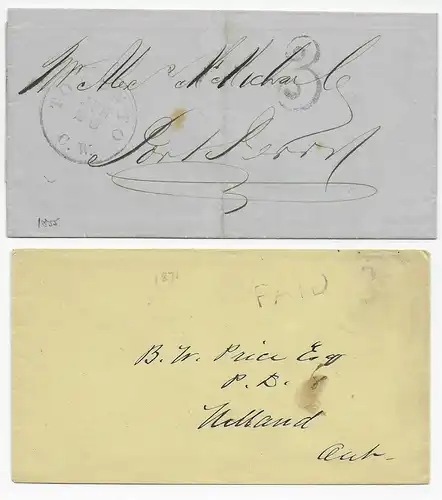 Mr Alex McMichael
3
TORONTO
C.W.
Port Perry
1855
1871
PAID 3
B. W. Price Esq
P. D.
Holland
Ont-